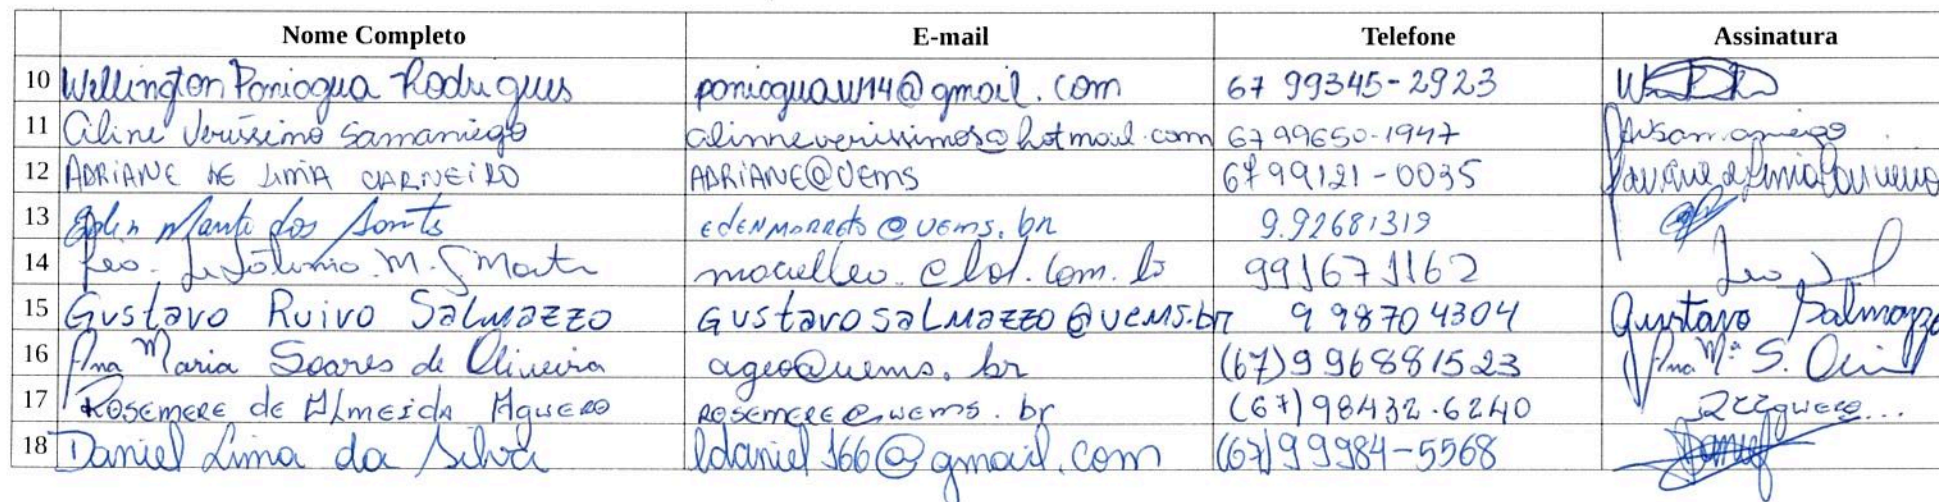 Nome Completo E-mail Telefone Assinatura
10 Wellington Paniagua Rodrigues paniaguaw14@gmail.com 67 99345-2923
11 Aline Verissimo Samaniego alinneverissimos@hotmail.com 67 99650-1947
12 ADRIANE DE LIMA CARNEIRO ADRIANE@UEMS 67 99121-0035
13 dos EDENMORRETO@UEMS.br 9.92681319
14 Leo. M. 991671162 Leo
15 Gustavo Ruivo Salmazzo Gustavosalmazzo@uems.br 9 98704304 Gustavo Salmazzo
16 Ana Maria Soares de Oliveira ageo@uems.br (67)996881523 Ana Mª S.
17 Rosemere de Almeida Aguero rosemere@uems.br (67)98432.6240
18 Daniel Lima da Silva ldaniel166@gmail.com (67)99984-5568 Daniel